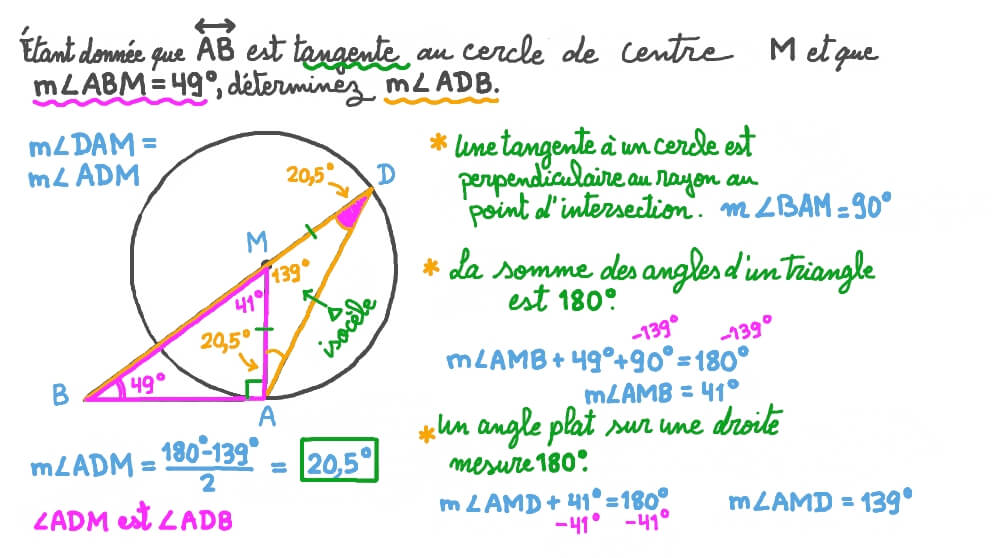 Étant donnée que AB est tangente au cercle de centre M et que
m∠ABM = 49°, déterminez m∠ADB.
m∠DAM =
m∠ADM
20,5°
D
M
139°
41°
20,5°
△ isocèle
B
49°
A
m∠ADM = 180°-139° / 2 = 20,5°
∠ADM est ∠ADB
* Une tangente à un cercle est
perpendiculaire au rayon au
point d'intersection. m∠BAM = 90°
* La somme des angles d'un triangle
est 180°.
-139° -139°
m∠AMB + 49° + 90° = 180°
m∠AMB = 41°
* Un angle plat sur une droite
mesure 180°.
m∠AMD + 41° = 180° m∠AMD = 139°
-41° -41°